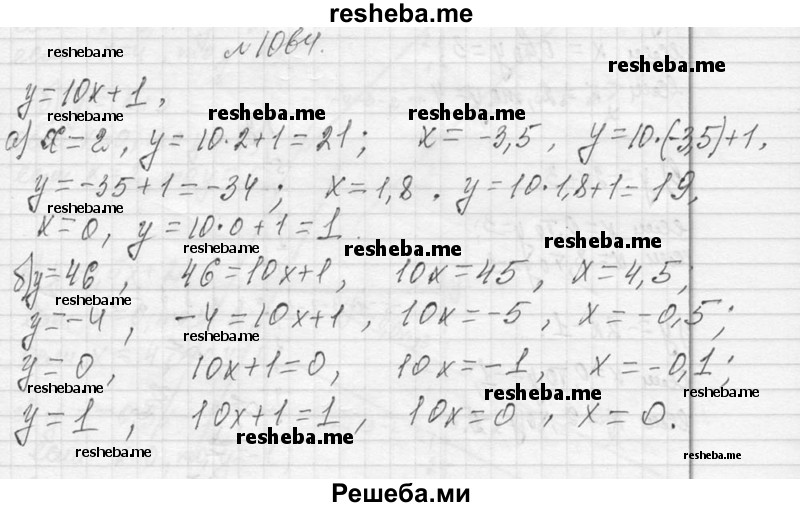 resheba.me
resheba.me №1064. resheba.me
y=10x+1,
resheba.me resheba.me resheba.me
а) x=2, y=10·2+1=21; x=-3,5, y=10·(-3,5)+1,
y=-35+1=-34; x=1,8. y=10·1,8+1=19,
resheba.me
x=0, y=10·0+1=1.
resheba.me resheba.me resheba.me
б) y=46, 46=10x+1, 10x=45, x=4,5;
resheba.me
y=-4, -4=10x+1, 10x=-5, x=-0,5;
resheba.me
y=0, 10x+1=0, 10x=-1, x=-0,1;
resheba.me resheba.me resheba.me
y=1, 10x+1=1, 10x=0, x=0.
resheba.me resheba.me resheba.me
Решеба.ми